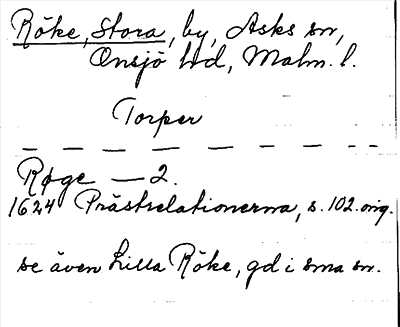 Röke, Stora, by, Asks sn,
Onsjö hd, Malm. l.
Torper
Røge — 2.
1624 Prästrelationerna, s. 102. orig.
se även Lilla Röke, gd i sma sn.